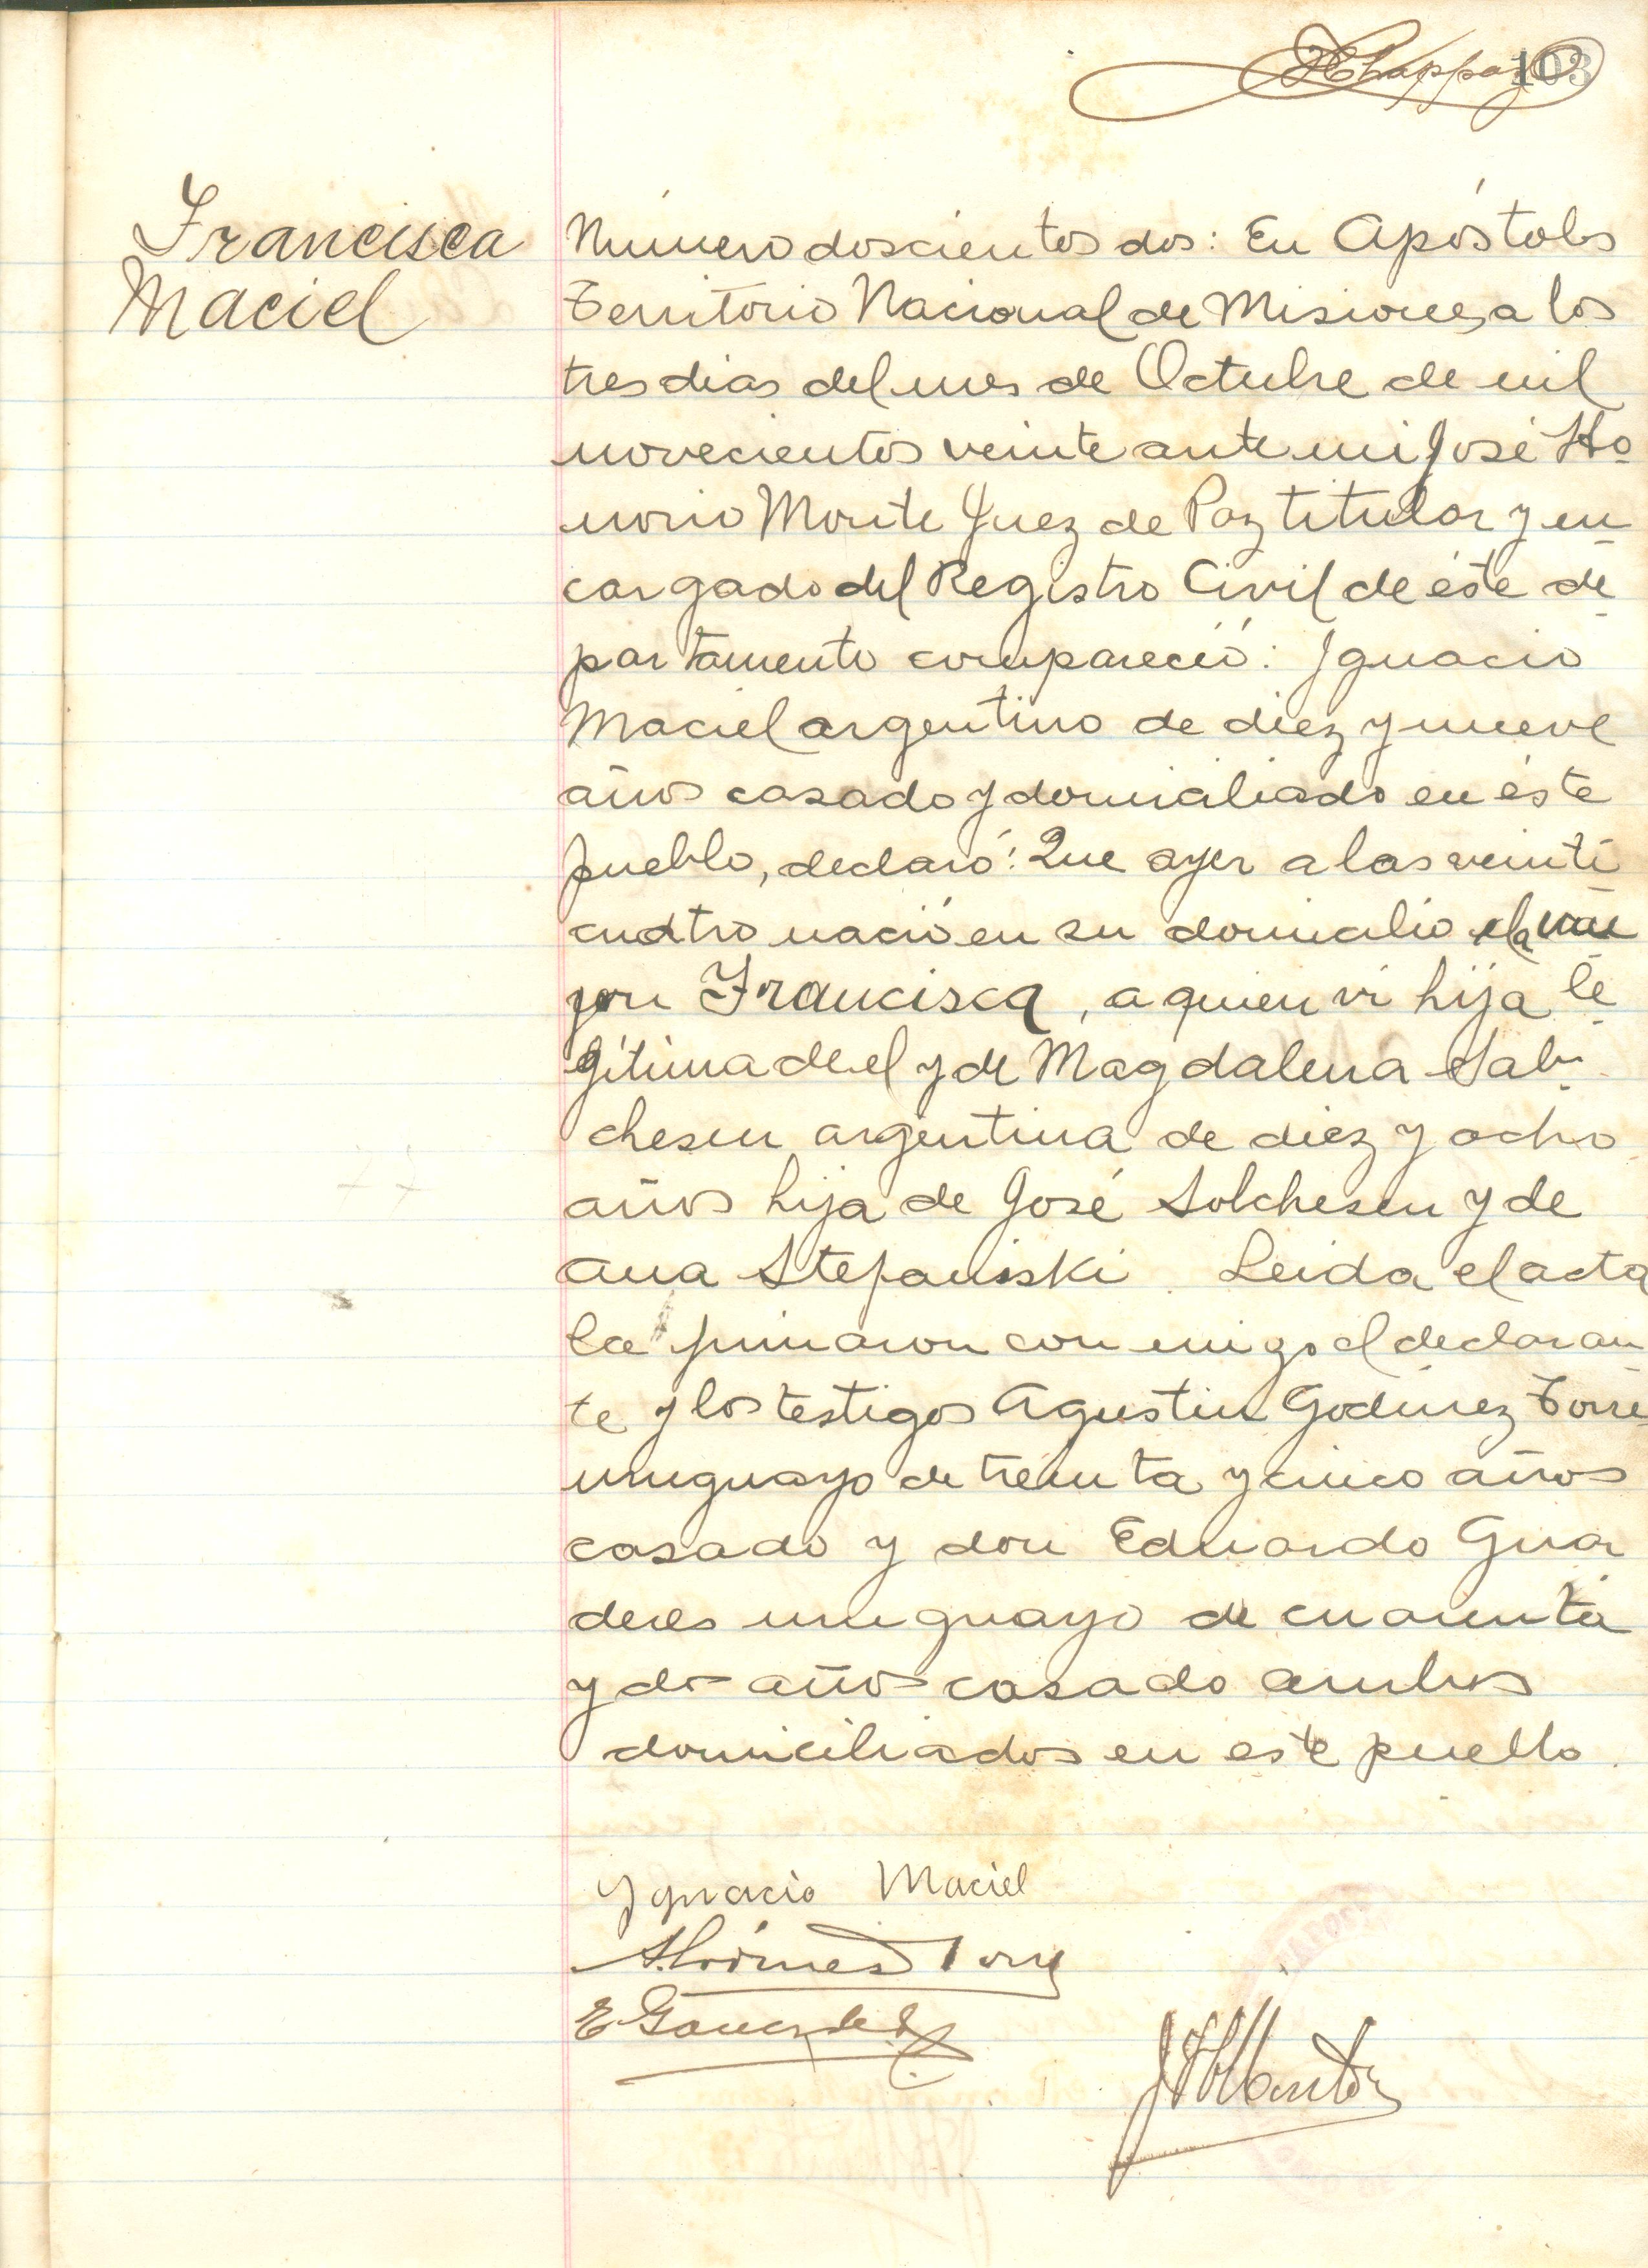 103
Francisca
Maciel
Número doscientos dos: En Apóstoles
Territorio Nacional de Misiones, a los
tres dias del mes de Octubre de mil
novecientos veinte ante mi José Ho
norio Monte Juez de Paz titular y en
cargado del Registro Civil de éste de
partamento compareció: Ignacio
Maciel argentino de diez y nueve
años casado y domiciliado en éste
pueblo, declaró: Que ayer a las veinti
cuatro nació en su domicilio
Francisca, a quien vi hija le
gitima de el y de Magdalena
chesen argentina de diez y ocho
años hija de José Solchesen y de
Ana Stefaniski. Leida el acta
la firmaron con migo el declaran
te y los testigos Agustin Godinez Torre
uruguayo de treinta y cinco años
casado y don Eduardo
uruguayo de cuarenta
y dos años casado ambos
domiciliados en este pueblo.
Ygnacio Maciel